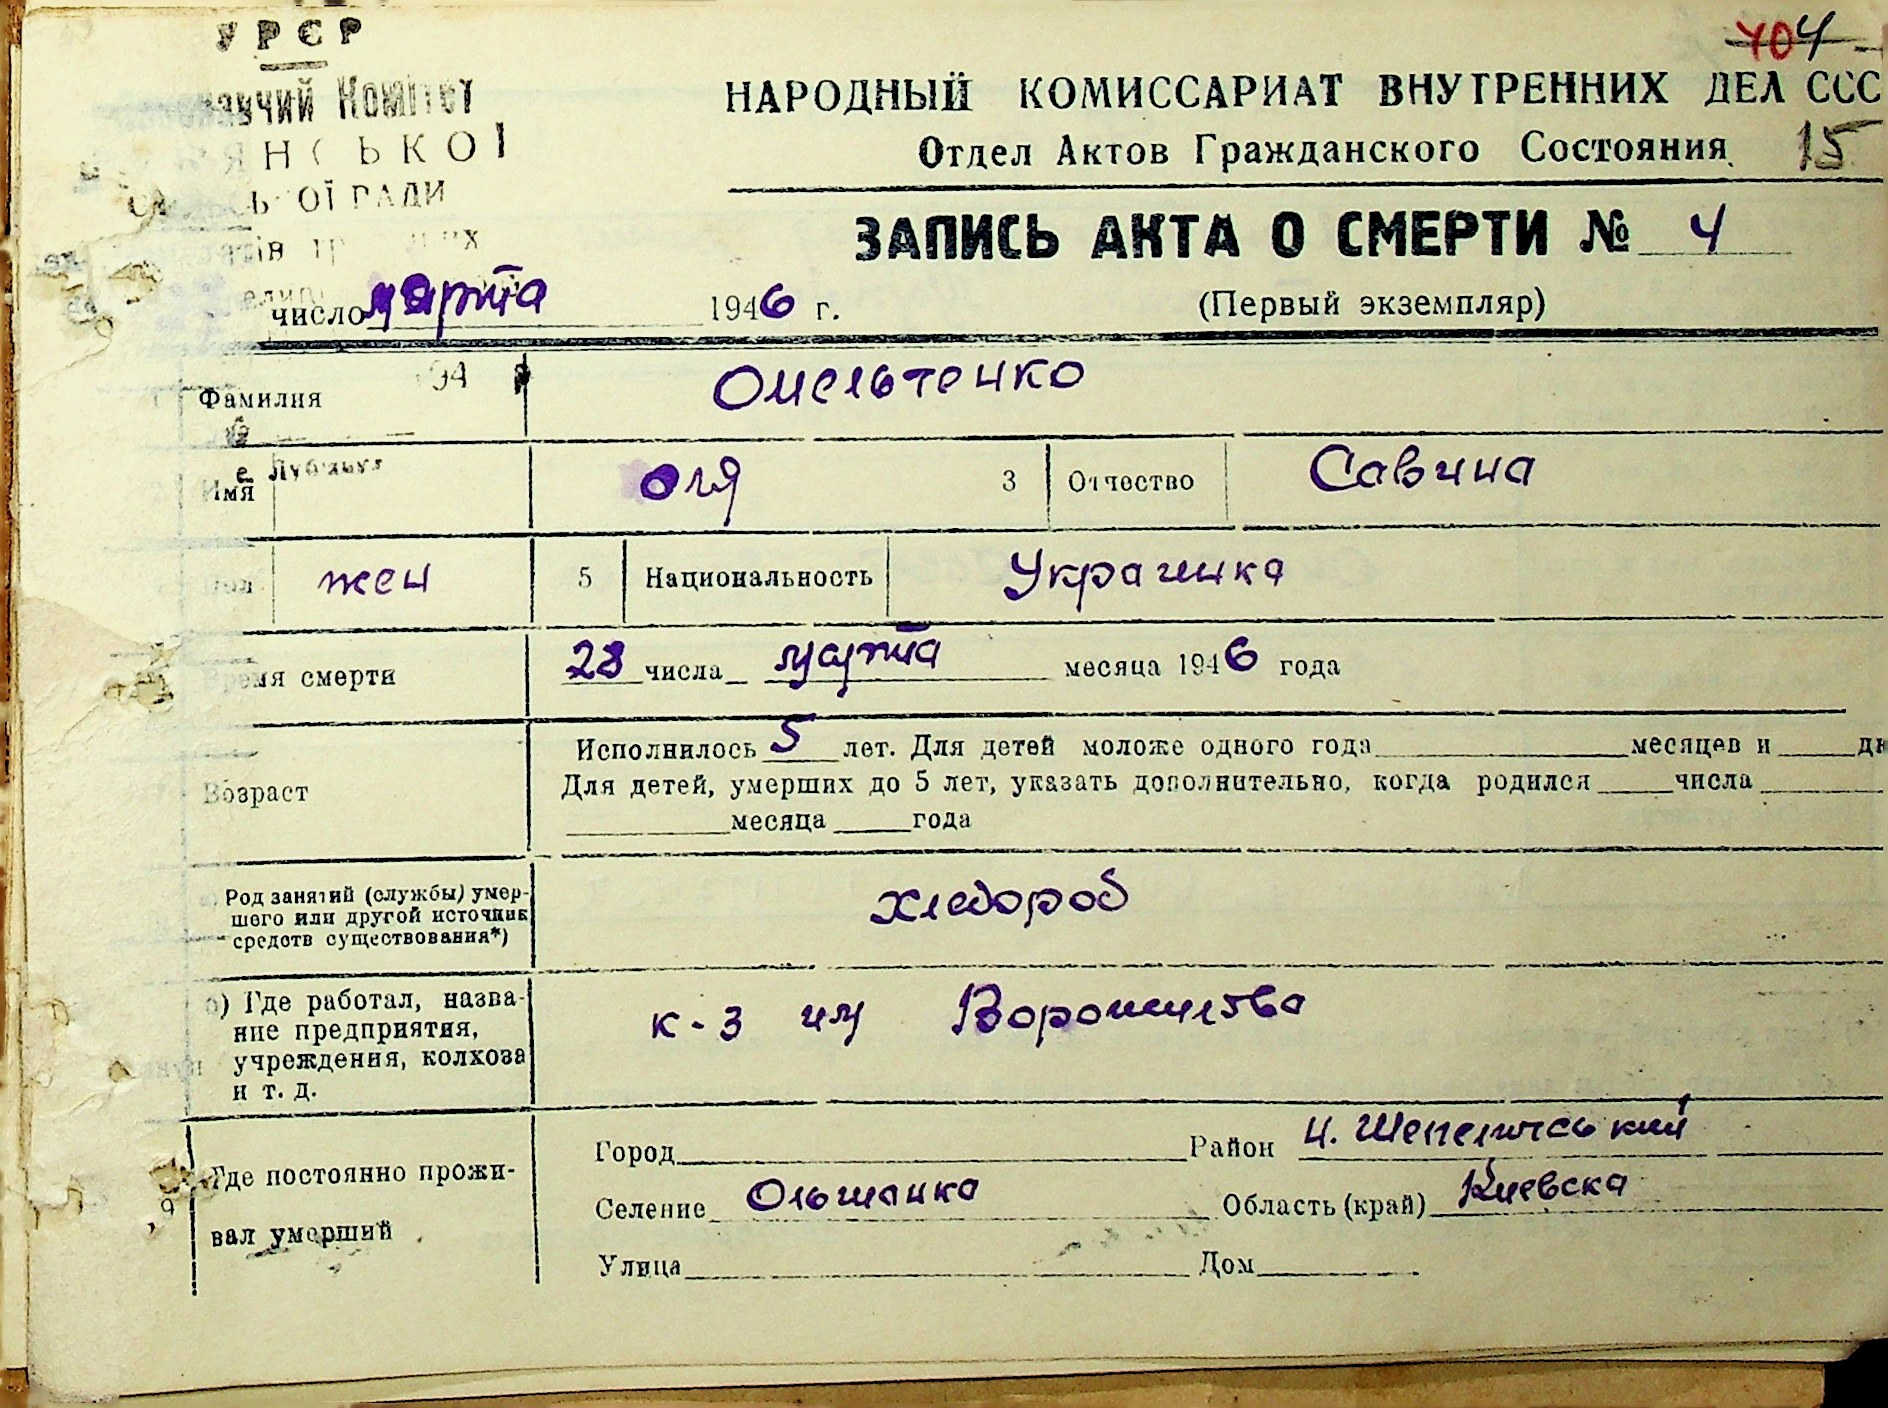 УРЄР
Комітет
СЬКОЇ
РАДИ
404
НАРОДНЫЙ КОМИССАРИАТ ВНУТРЕННИХ ДЕЛ ССС
Отдел Актов Гражданского Состояния
15
ЗАПИСЬ АКТА О СМЕРТИ № 4
число марта 1946 г.
(Первый экземпляр)
Фамилия Омельченко
Имя Оля 3 Отчество Савина
Пол жен 5 Национальность Украинка
Время смерти 28 числа марта месяца 1946 года
Исполнилось 5 лет. Для детей моложе одного года месяцев и дн
Возраст Для детей, умерших до 5 лет, указать дополнительно, когда родился числа
месяца года
Род занятий (службы) умер-
шего или другой источник
средств существования*)
хлебороб
б) Где работал, назва-
ние предприятия,
учреждения, колхоза
и т. д.
к-з им Ворошилова
Где постоянно прожи-
вал умерший
Город Район Н. Шепеличський
Селение Ольшанка Область (край) Киевска
Улица Дом